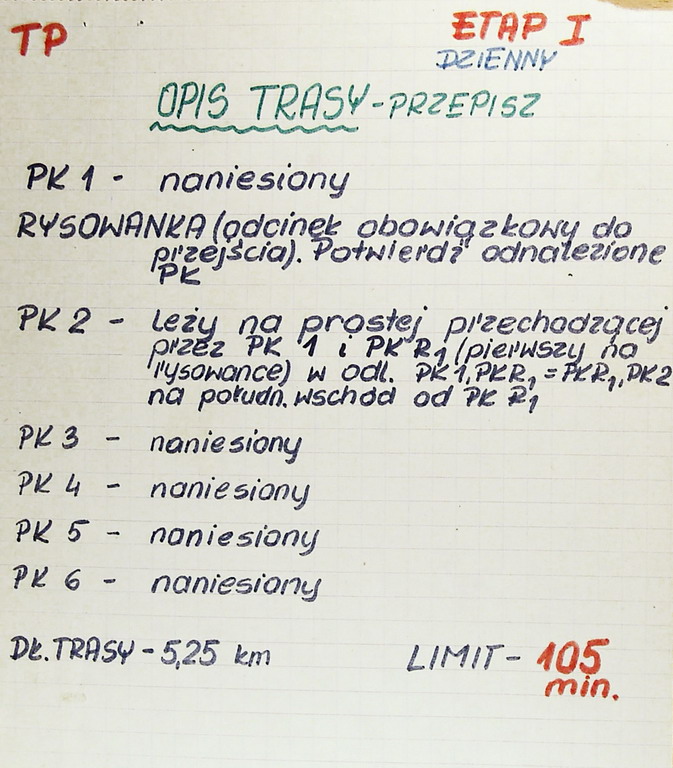 TP
ETAP I
DZIENNY
OPIS TRASY - PRZEPISZ
PK 1 - naniesiony
RYSOWANKA (odcinek obowiązkowy do
przejścia). Potwierdź odnalezione
PK
PK 2 - leży na prostej przechodzącej
przez PK 1 i PK R₁ (pierwszy na
rysowance) w odl. PK 1, PKR₁ = PKR₁, PK2
na połudn. wschód od PK R₁
PK 3 - naniesiony
PK 4 - naniesiony
PK 5 - naniesiony
PK 6 - naniesiony
DŁ. TRASY - 5,25 km
LIMIT - 105
min.